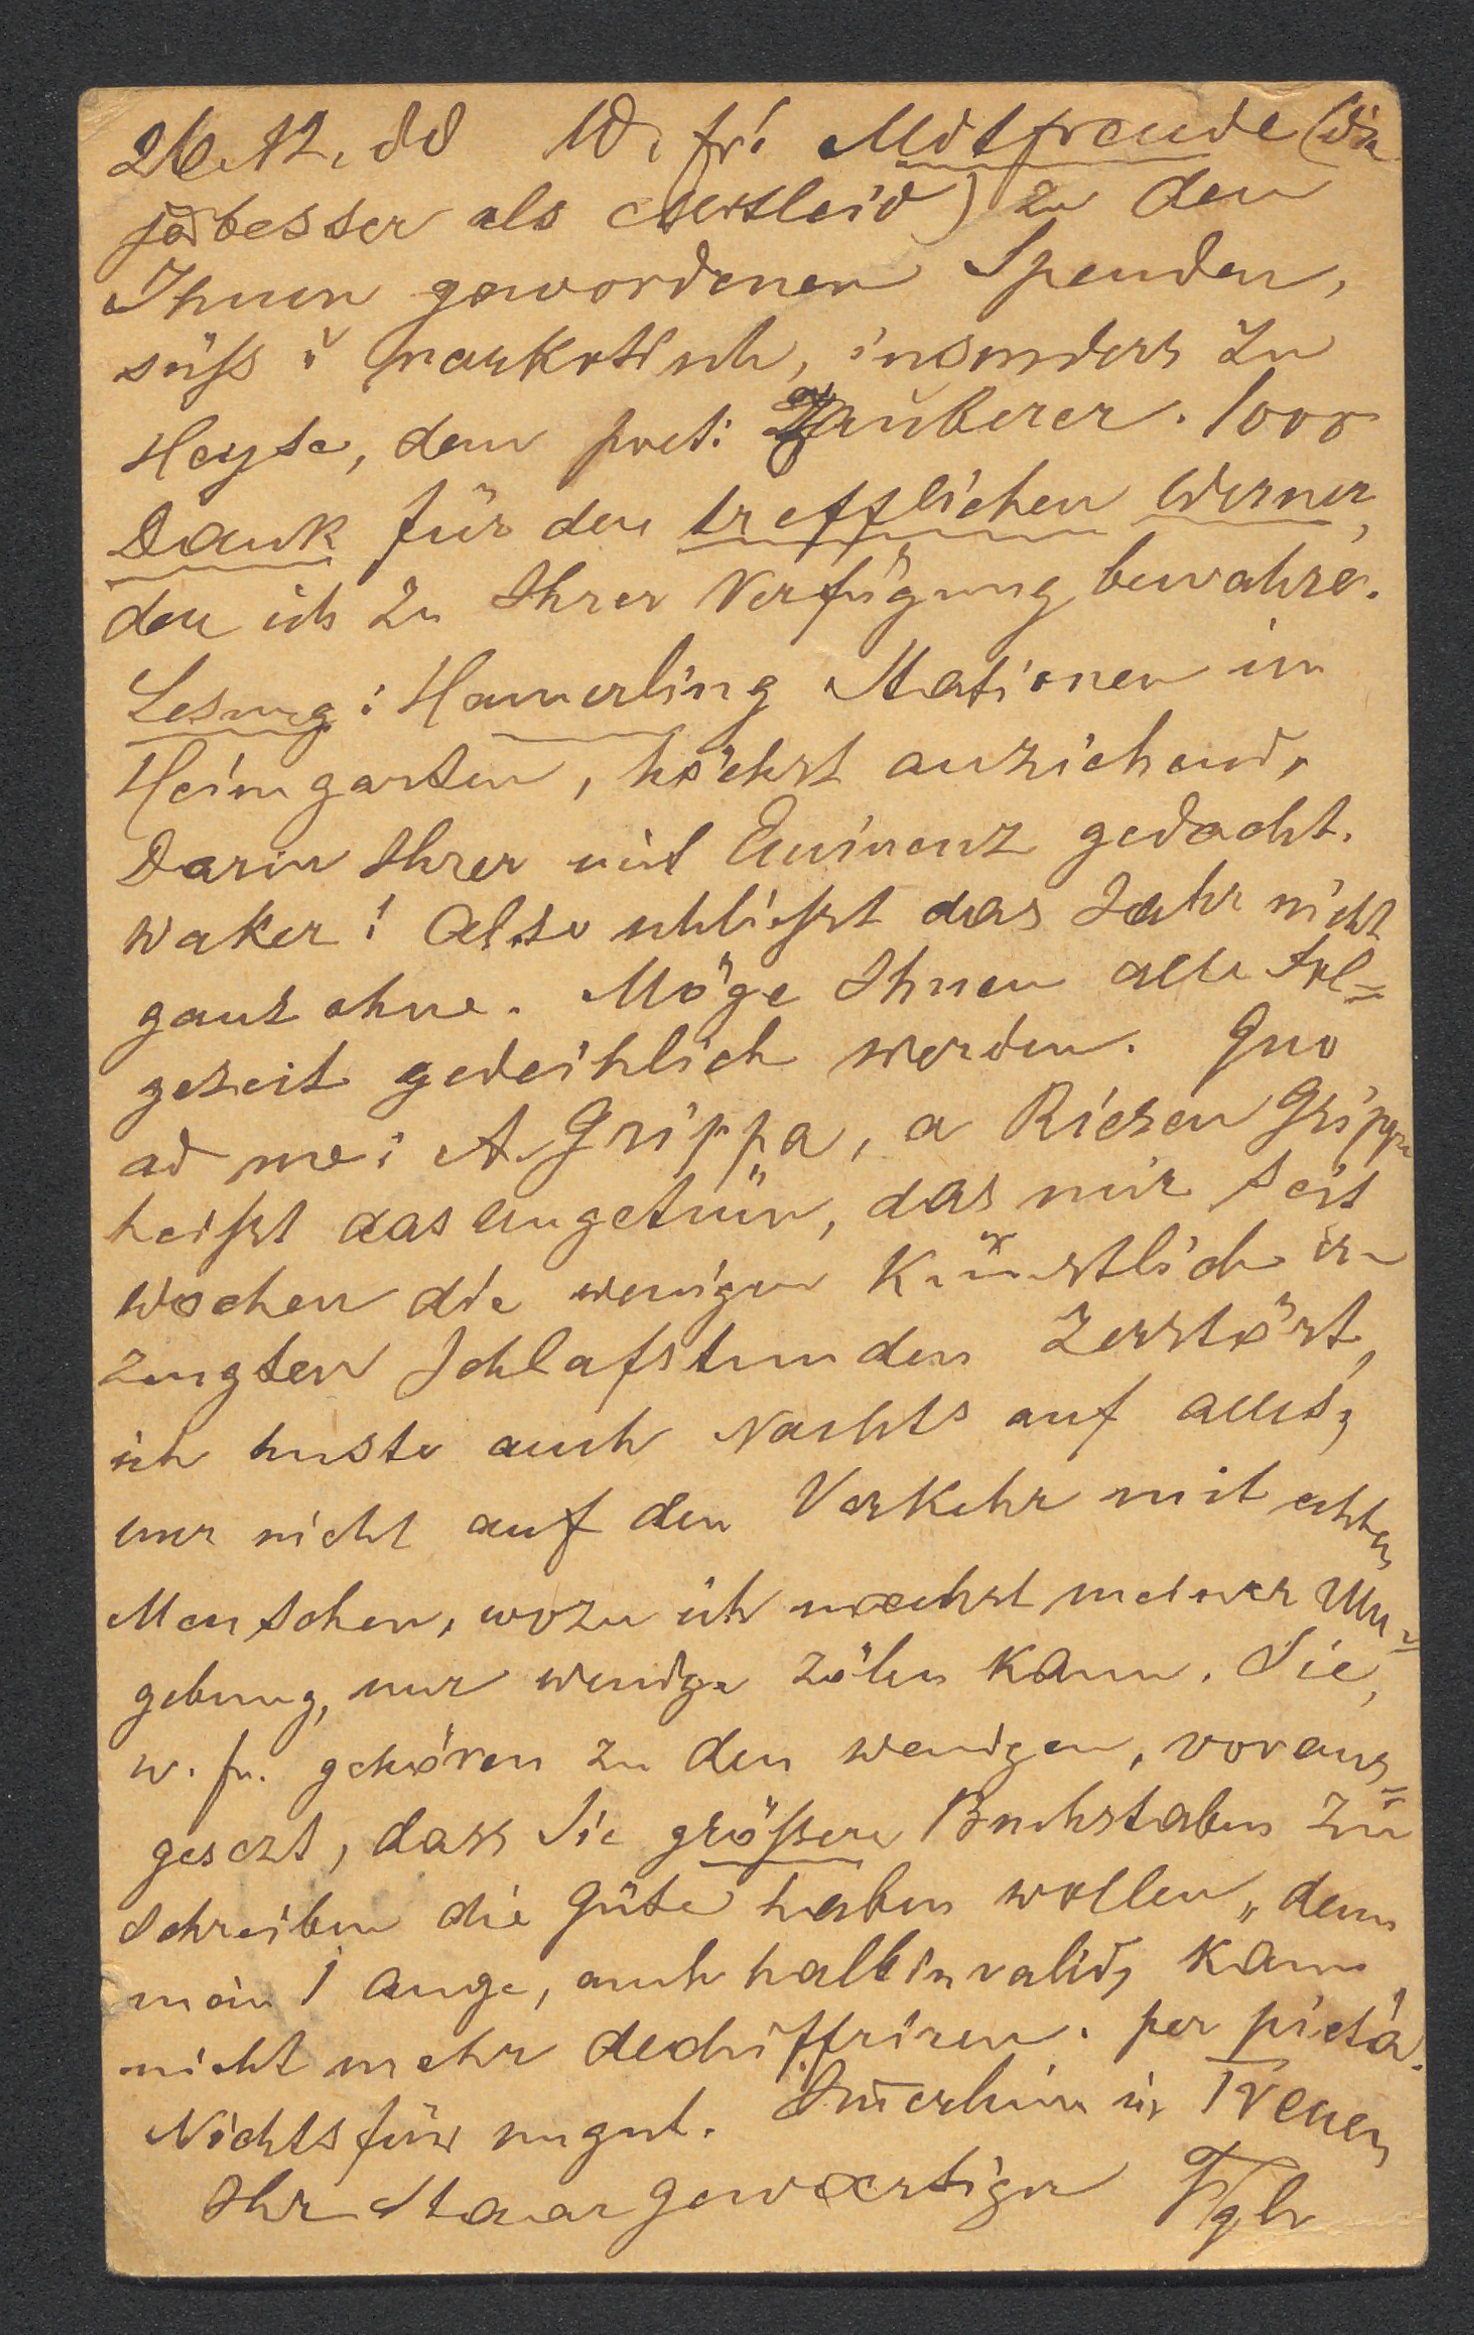 26.12.88 W. fr! Mitfreude (die
ja besser als Mitleid) zu den
Ihnen gewordenen Spenden,
süß u narkotisch, insonders zu
Heyse, dem poet: Zauberer. 1000
Dank für den trefflichen Werner,
den ich zu Ihrer Verfügung bewahre.
Lesung: Hamerling Stationen im
Heimgarten, höchst anziehend,
Darin Ihrer mit Eminenz gedacht.
waker! Also schließt das Jahr nicht
ganz ohne. Möge Ihnen alle Fol=
gezeit gedeihlich werden. Quo
ad me: A. Grippa, a Riesen Grippe
heißt das Ungetüm, das mir seit
Wochen die wenigen künstlich er
zeugten Schlafstunden zerstört,
ich huste auch Nachts auf alles,
nur nicht auf den Verkehr mit echten
Menschen, wozu ich naechst meiner Um=
gebung, nur wenige zälen kann. Sie,
w. fr. gehören zu den wenigen, voraus=
gesezt, dass Sie größere Buchstaben zu
schreiben die Güte haben wollen, denn
mein 1 Auge, auch halbinvalid, kann
nicht mehr dechiffriren. per pietà.
Nichts für ungut. Im̄erhin in Treuen
Ihr Staar gewaertiger Vglr